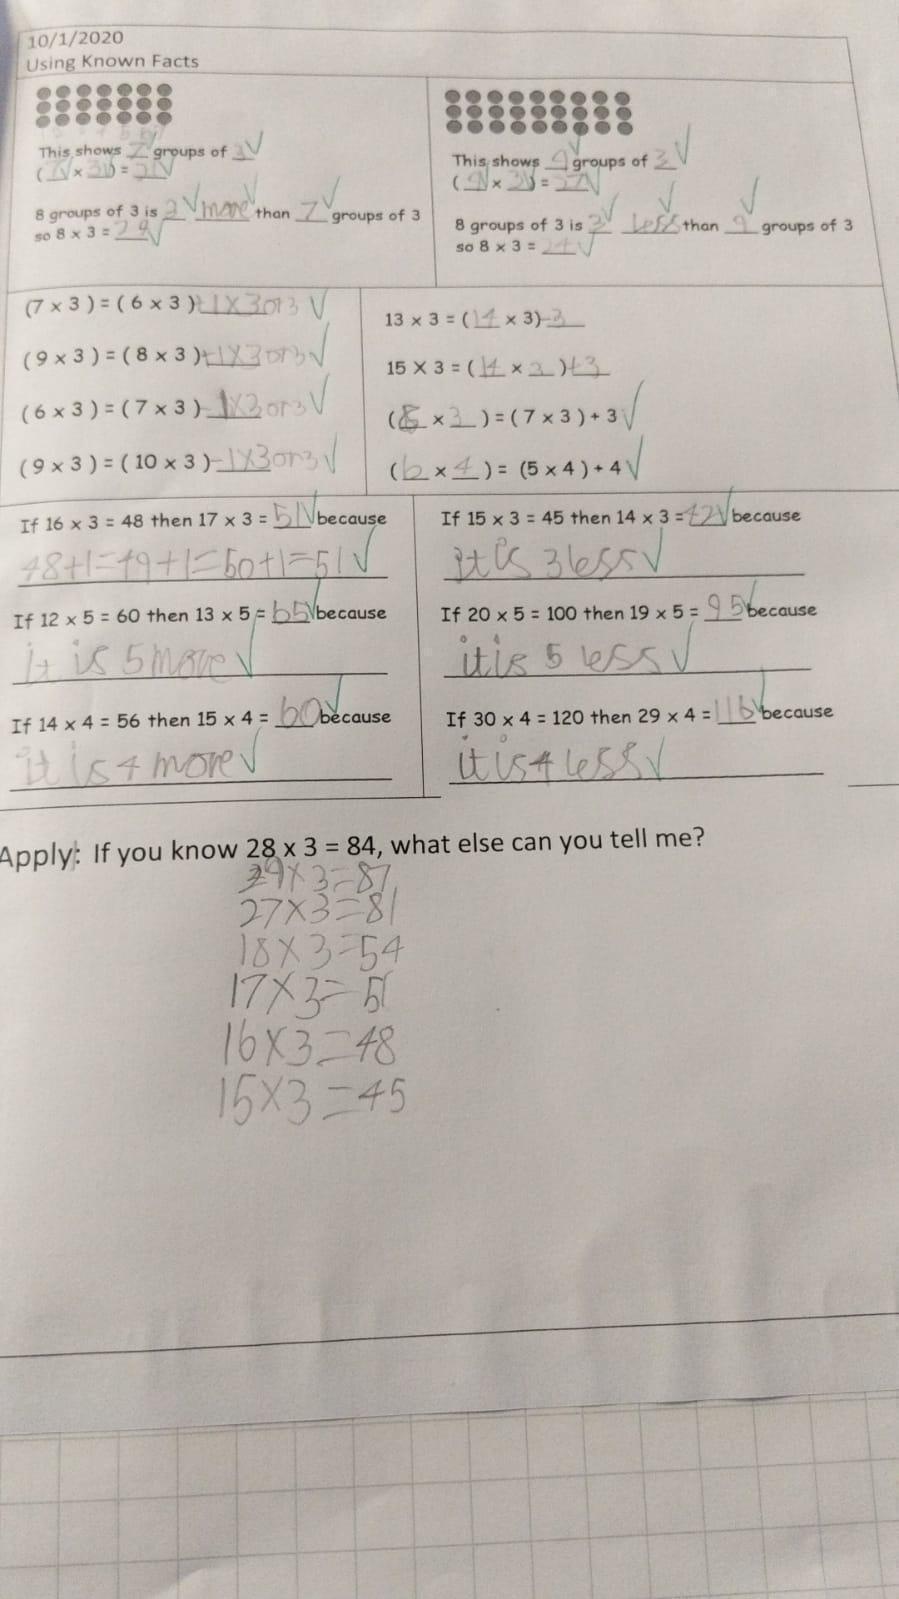 10/1/2020
Using Known Facts
This shows 7 groups of 3
(7 x 3) = 21
8 groups of 3 is 3 more than 7 groups of 3
so 8 x 3 = 24
This shows 9 groups of 3
(9 x 3) = 27
8 groups of 3 is 3 less than 9 groups of 3
so 8 x 3 = 24
(7 x 3) = (6 x 3) +1x3 or 3
(9 x 3) = (8 x 3) +1x3 or 3
(6 x 3) = (7 x 3) -1x3 or 3
(9 x 3) = (10 x 3) -1x3 or 3
13 x 3 = (14 x 3) -3
15 X 3 = (14 x 3) +3
(8 x 3) = (7 x 3) + 3
(6 x 4) = (5 x 4) + 4
If 16 x 3 = 48 then 17 x 3 = 51 because
48+1=49+1=50+1=51
If 12 x 5 = 60 then 13 x 5 = 65 because
it is 5 more
If 14 x 4 = 56 then 15 x 4 = 60 because
it is 4 more
If 15 x 3 = 45 then 14 x 3 = 42 because
it is 3 less
If 20 x 5 = 100 then 19 x 5 = 95 because
it is 5 less
If 30 x 4 = 120 then 29 x 4 = 116 because
it is 4 less
Apply: If you know 28 x 3 = 84, what else can you tell me?
29x3=87
27x3=81
18x3=54
17x3=51
16x3=48
15x3=45